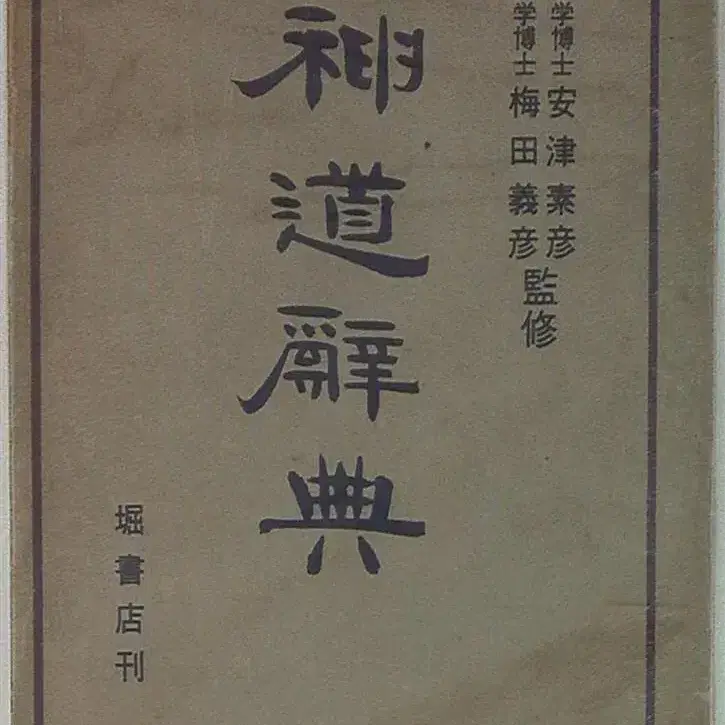 学博士 安津素彦
学博士 梅田義彦
監修
神道辭典
堀書店刊